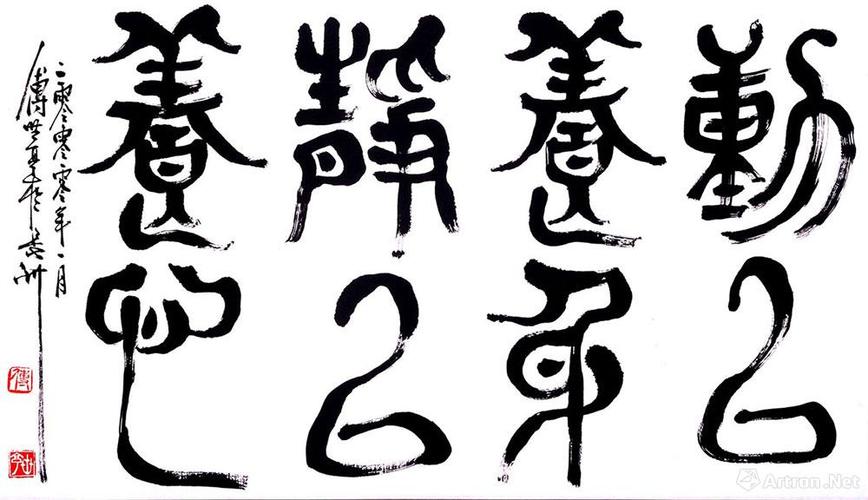 動以
養身
靜以
養心
二零零零年一月
傅世
傅
Artron.Net